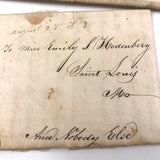 august 28
To Miss Emily S Hodenberg
Saint Louis
Mo
And Nobody Else